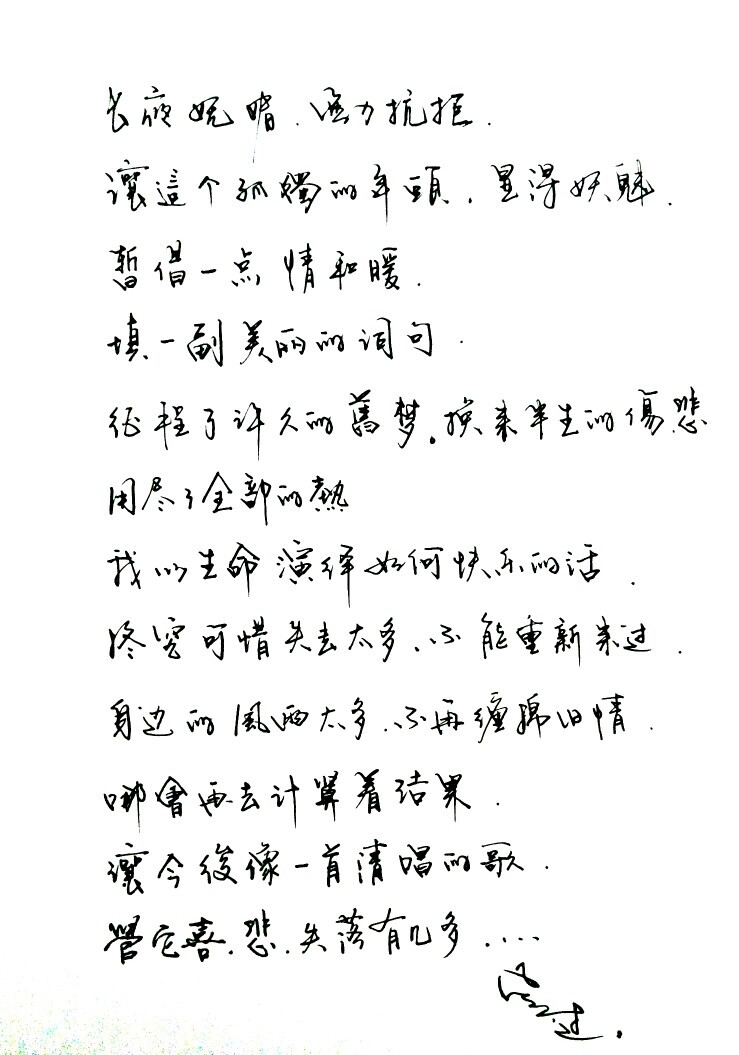 长夜妩暗.强力抗拒.
讓這个孤獨的年頭.显得妖魅.
暫借一点情和暖.
填一副美丽的词句.
征程了许久的舊梦。换来半生的傷悲
用尽了全部的熱
我以生命演绎如何快乐的话.
终究可惜失去太多.不能重新来过.
身边的風雨太多.不再纏綿旧情.
哪會再去计算着结果.
讓今後像一首清唱的歌.
管它喜.悲.失落有几多....